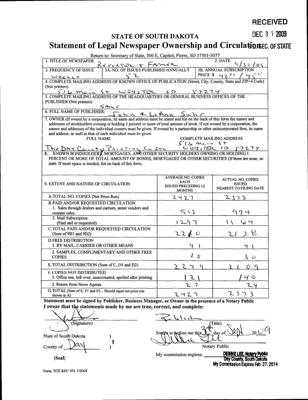 RECEIVED
DEC 31 2009
SEC. OF STATE
STATE OF SOUTH DAKOTA
Statement of Legal Newspaper Ownership and Circulation
Return to: Secretary of State, 500 E. Capitol, Pierre, SD 57501-5077
1. TITLE OF NEWSPAPER
Reporter & Farmer
2. DATE
3. FREQUENCY OF ISSUE
Weekly
3A. NO. OF ISSUES PUBLISHED ANNUALLY
52
3B. ANNUAL SUBSCRIPTION
PRICE $
4. COMPLETE MAILING ADDRESS OF KNOWN OFFICE OF PUBLICATION (Street, City, County, State and ZIP+4 Code)
(Not printers)
516 Main St Webster SD 57274
5. COMPLETE MAILING ADDRESS OF THE HEADQUARTERS OF GENERAL BUSINESS OFFICES OF THE
PUBLISHER (Not printers)
Same
6. FULL NAME OF PUBLISHER:
John & LeAnn Suhr
7. OWNER (If owned by a corporation, its name and address must be stated and also
addresses of stockholders owning or holding 1 percent or more of total amount of stock. If not owned by a corporation, the
names and addresses of the individual owners must be given. If owned by a partnership or other unincorporated firm, its name
and address, as well as that of each individual must be given.
FULL NAME
COMPLETE MAILING ADDRESS
516 Main St
The Day County Printing Co
Webster SD 57274
8. KNOWN BONDHOLDERS, MORTGAGES, AND OTHER SECURITY HOLDERS OWNING OR HOLDING 1
PERCENT OR MORE OF TOTAL AMOUNT OF BONDS, MORTGAGES OR OTHER SECURITIES (If there are none, so
state. If more space is needed, list on back of this form.
9. EXTENT AND NATURE OF CIRCULATION
AVERAGE NO. COPIES
EACH
ISSUED PRECEDING 12
MONTHS
ACTUAL NO. COPIES
ISSUED
NEAREST TO FILING DATE
A. TOTAL NO. COPIES (Net Press Run)
2427
2373
B. PAID AND/OR REQUESTED CIRCULATION
1. Sales through dealers and carriers, street vendors and
counter sales.
913
974
2. Mail Subscription
(Paid and or requested)
1297
1164
C. TOTAL PAID AND/OR REQUESTED CIRCULATION
(Sum of 9B1 and 9B2)
2210
2138
D. FREE DISTRIBUTION
1. BY MAIL, CARRIER OR OTHER MEANS
41
41
2. SAMPLES, COMPLIMENTARY AND OTHER FREE
COPIES
25
30
E. TOTAL DISTRIBUTION (Sum of C, D1 and D2)
2279
2209
F. COPIES NOT DISTRIBUTED
1. Office use, left over, unaccounted, spoiled after printing
121
140
2. Return from News Agents
27
24
G. TOTAL (Sum of E, F1 and F2 - Should equal net press run
shown in A)
2427
2373
Statement must be signed by Publisher, Business Manager, or Owner in the presence of a Notary Public
I swear that the statements made by me are true, correct, and complete:
(Signature)
Publisher
(Title)
State of South Dakota )
County of Day )
Sept 2009
Notary Public
(Seal)
My commission expires:
DEBBIE LEE, Notary Public
Day County, South Dakota
My Commission Expires Feb. 27, 2014